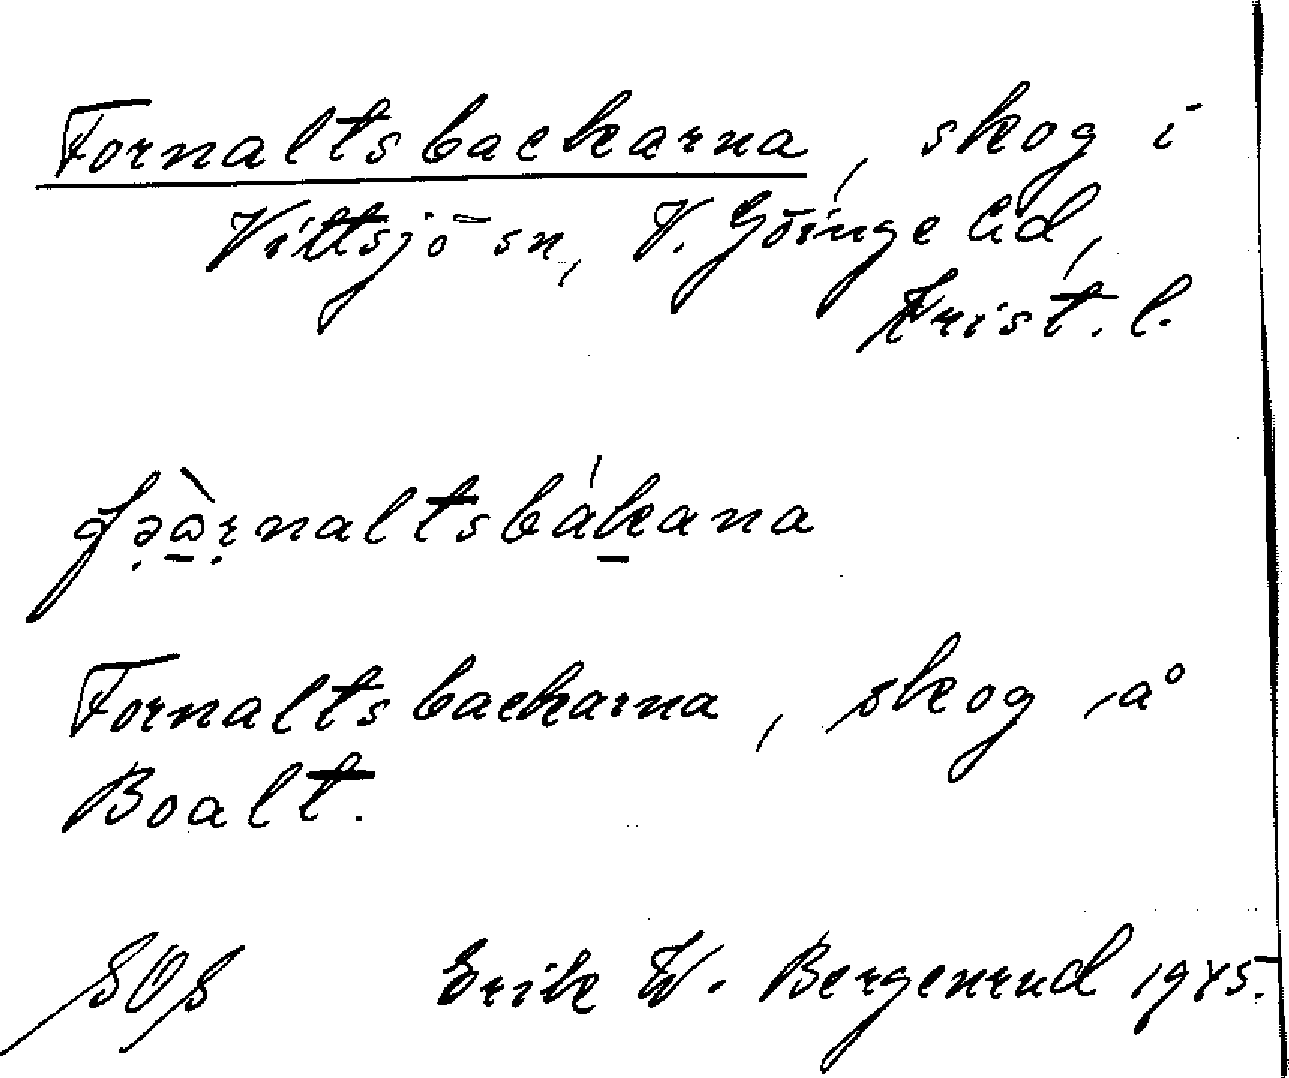 Fornaltsbackarna, skog i
Vittsjö sn, V. Göinge hd,
Krist. l.
Fornaltsbackarna, skog å
Boalt.
SOS Erik W. Bergenrud 1945.